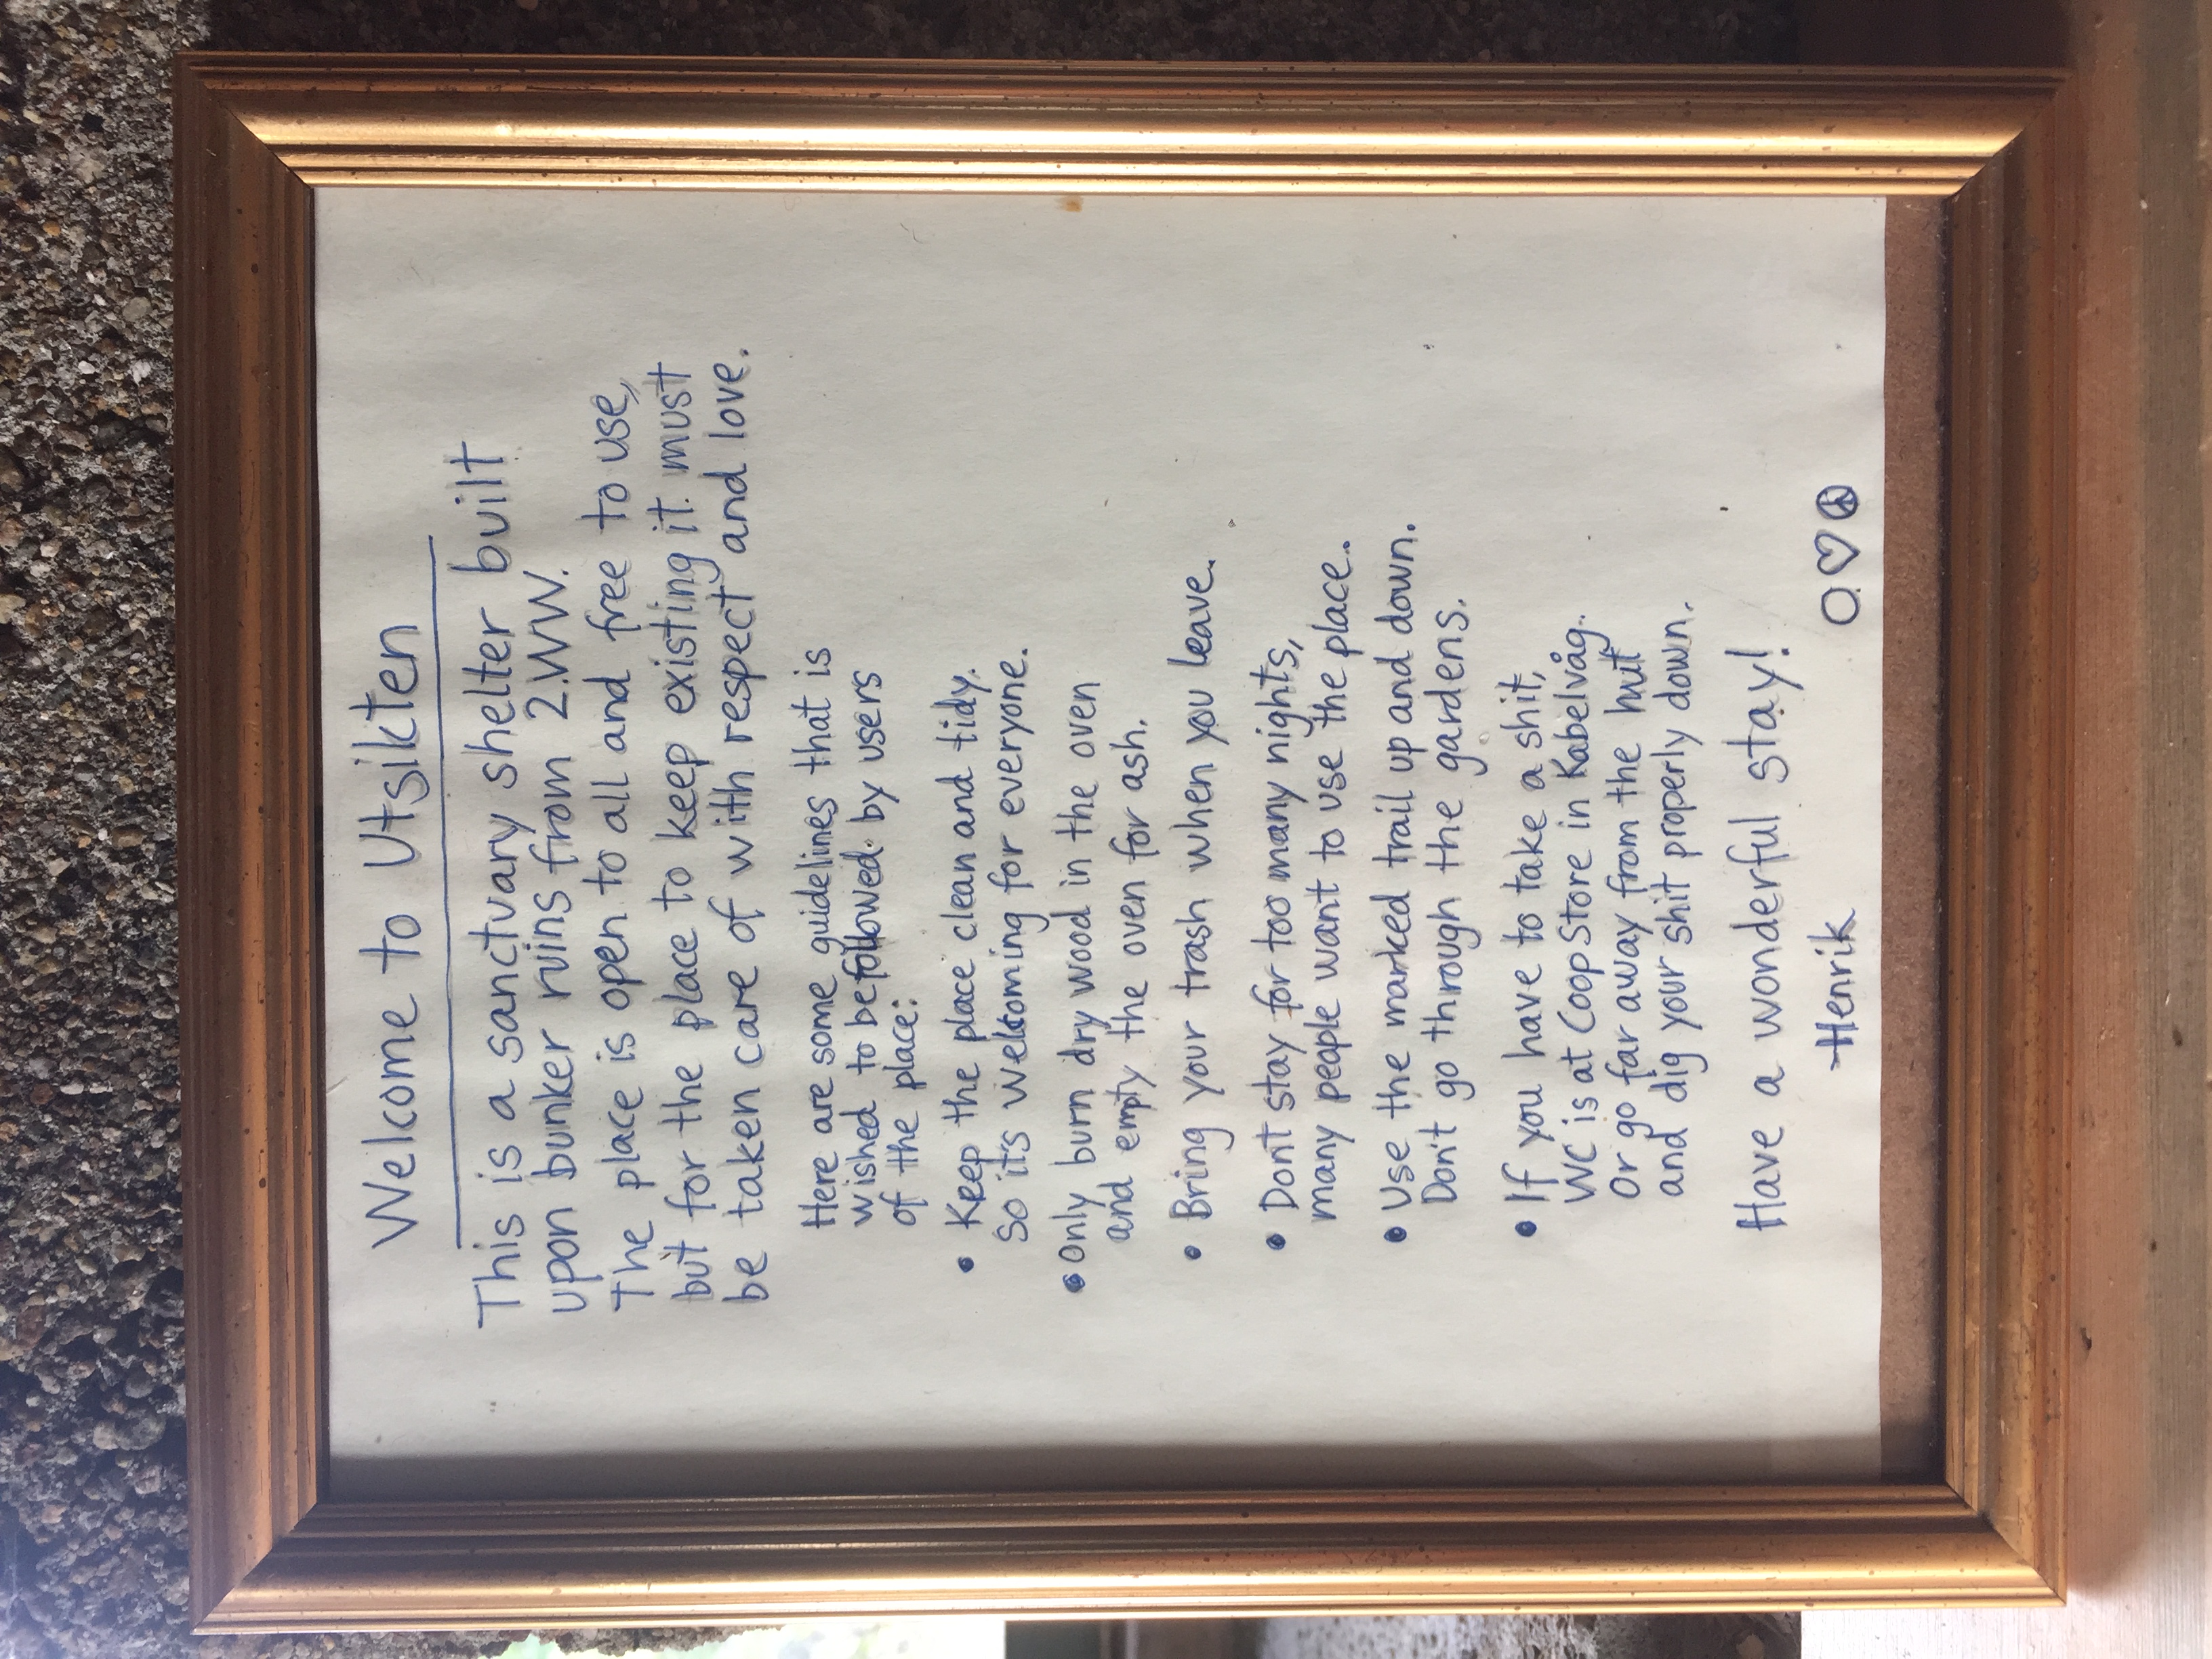 Welcome to Utsikten
This is a sanctuary shelter built
upon bunker ruins from 2.WW.
The place is open to all and free to use,
but for the place to keep existing it must
be taken care of with respect and love.
Here are some guidelines that is
wished to be followed by users
of the place:
• Keep the place clean and tidy.
so it's welcoming for everyone.
• Only burn dry wood in the oven
and empty the oven for ash.
• Bring your trash when you leave.
• Dont stay for too many nights,
many people want to use the place.
• Use the marked trail up and down.
Don't go through the gardens.
• If you have to take a shit,
WC is at Coop Store in Kabelvåg.
Or go far away from the hut
and dig your shit properly down.
Have a wonderful stay!
Henrik